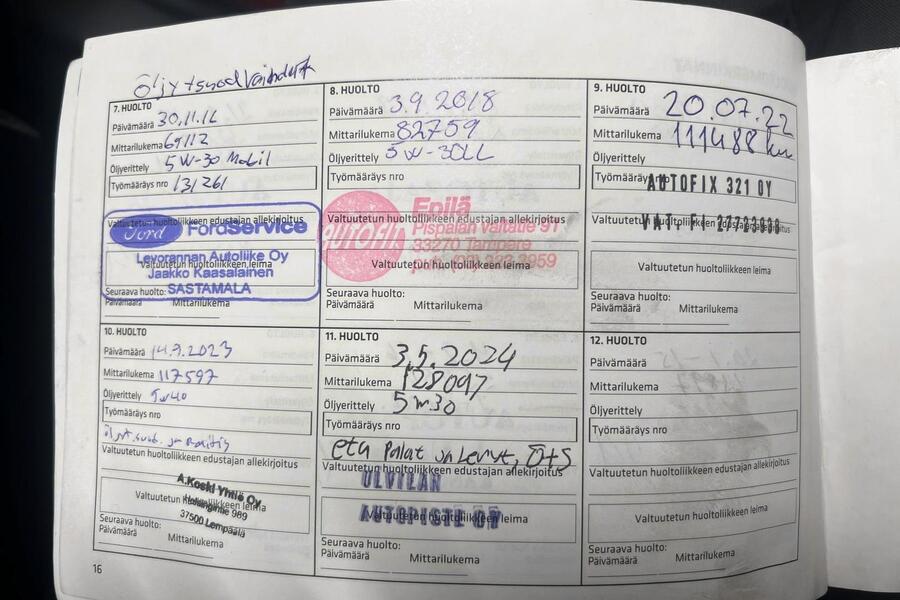 Öljy + suod vaihdettu
7. HUOLTO
Päivämäärä 30.11.16
Mittarilukema 69112
Öljyerittely 5W-30 Mobil
Työmääräys nro 131261
Valtuutetun huoltoliikkeen edustajan allekirjoitus
Ford FordService
Levorannan Autoliike Oy
Valtuutetun huoltoliikkeen leima
Jaakko Kaasalainen
SASTAMALA
Seuraava huolto:
Päivämäärä Mittarilukema
8. HUOLTO
Päivämäärä 3.9.2018
Mittarilukema 82759
Öljyerittely 5W-30LL
Työmääräys nro
Valtuutetun huoltoliikkeen edustajan allekirjoitus
AUTOFIX Epilä
Pispalan valtatie 91
33270 Tampere
Valtuutetun huoltoliikkeen leima
Seuraava huolto:
Päivämäärä Mittarilukema
9. HUOLTO
Päivämäärä 20.07.22
Mittarilukema 111488 km
Öljyerittely
Työmääräys nro
AUTOFIX 321 OY
Valtuutetun huoltoliikkeen edustajan allekirjoitus
VAT. FI
Valtuutetun huoltoliikkeen leima
Seuraava huolto:
Päivämäärä Mittarilukema
10. HUOLTO
Päivämäärä 14.9.2023
Mittarilukema 117597
Öljyerittely 5w40
Työmääräys nro
Valtuutetun huoltoliikkeen edustajan allekirjoitus
A.Koski Yhtiö Oy
Valtuutetun huoltoliikkeen leima
Helsingintie 989
37500 Lempäälä
Seuraava huolto:
Päivämäärä Mittarilukema
11. HUOLTO
Päivämäärä 3.5.2024
Mittarilukema 128097
Öljyerittely 5w30
Työmääräys nro
etu Palat ja Levyt, Ö+S
Valtuutetun huoltoliikkeen edustajan allekirjoitus
ULVILAN
Valtuutetun huoltoliikkeen leima
AUTOPISTE OY
Seuraava huolto:
Päivämäärä Mittarilukema
12. HUOLTO
Päivämäärä
Mittarilukema
Öljyerittely
Työmääräys nro
Valtuutetun huoltoliikkeen edustajan allekirjoitus
Valtuutetun huoltoliikkeen leima
Seuraava huolto:
Päivämäärä Mittarilukema
16